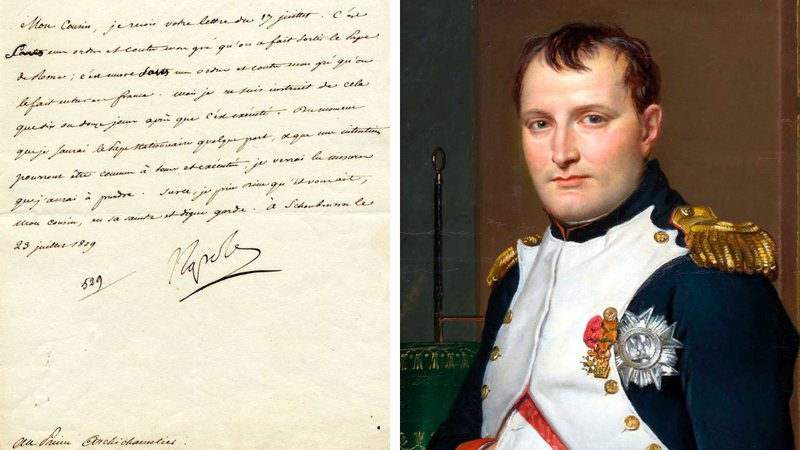 Mon Cousin, je reçois votre lettre du 17 juillet. C'est
sans un ordre et contre mon gré qu'on a fait sortir le Pape
de Rome; c'est encore sans un ordre et contre mon gré qu'on
le fait entrer en france. Mais je ne suis instruit de cela
que dix ou douze jours après que c'est exécuté. Du moment
que je saurai le Pape stationnaire quelque part, et que mes intentions
pourront être connues à tems et exécutées, je verrai les mesures
que j'aurai à prendre. Sur ce, je prie Dieu qu'il vous ait,
Mon Cousin, en sa sainte et digne garde. à Schoenbrunn le
23 juillet 1809
Napole
529
Au Prince Archichancelier